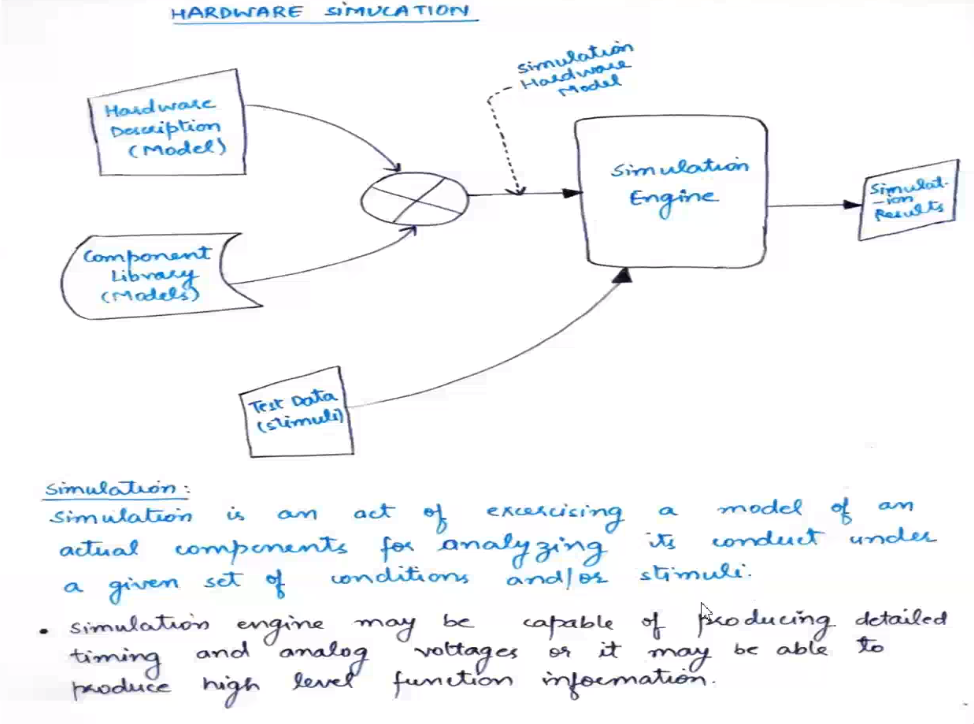 HARDWARE SIMULATION
Simulation
Hardware
Model
Hardware
Description
(Model)
Simulation
Engine
Simulat-
-ion
Results
Component
Library
(Models)
Test Data
(stimuli)
Simulation:
Simulation is an act of excercising a model of an
actual components for analyzing its conduct under
a given set of conditions and/or stimuli.
• simulation engine may be capable of producing detailed
timing and analog voltages or it may be able to
produce high level function information.